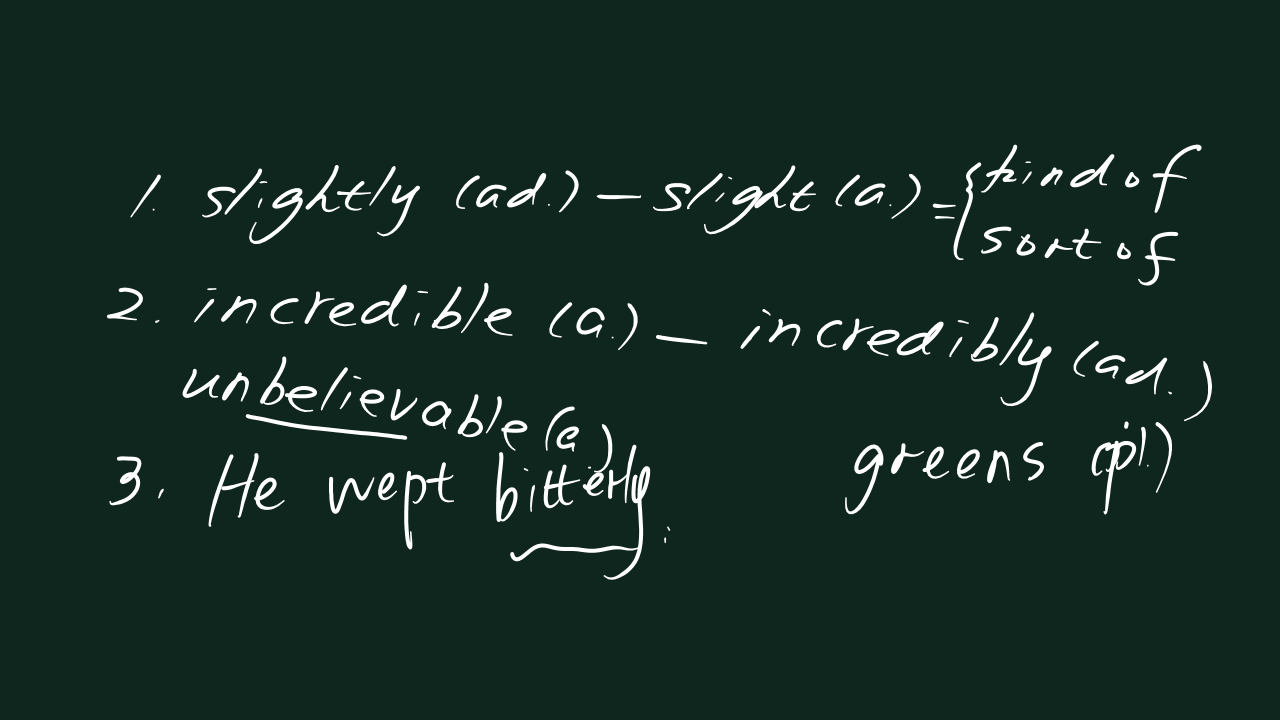 1. slightly (ad.) — slight (a.) = { kind of
sort of
2. incredible (a.) — incredibly (ad.)
unbelievable (a)
3. He wept bitterly.
greens (pl.)